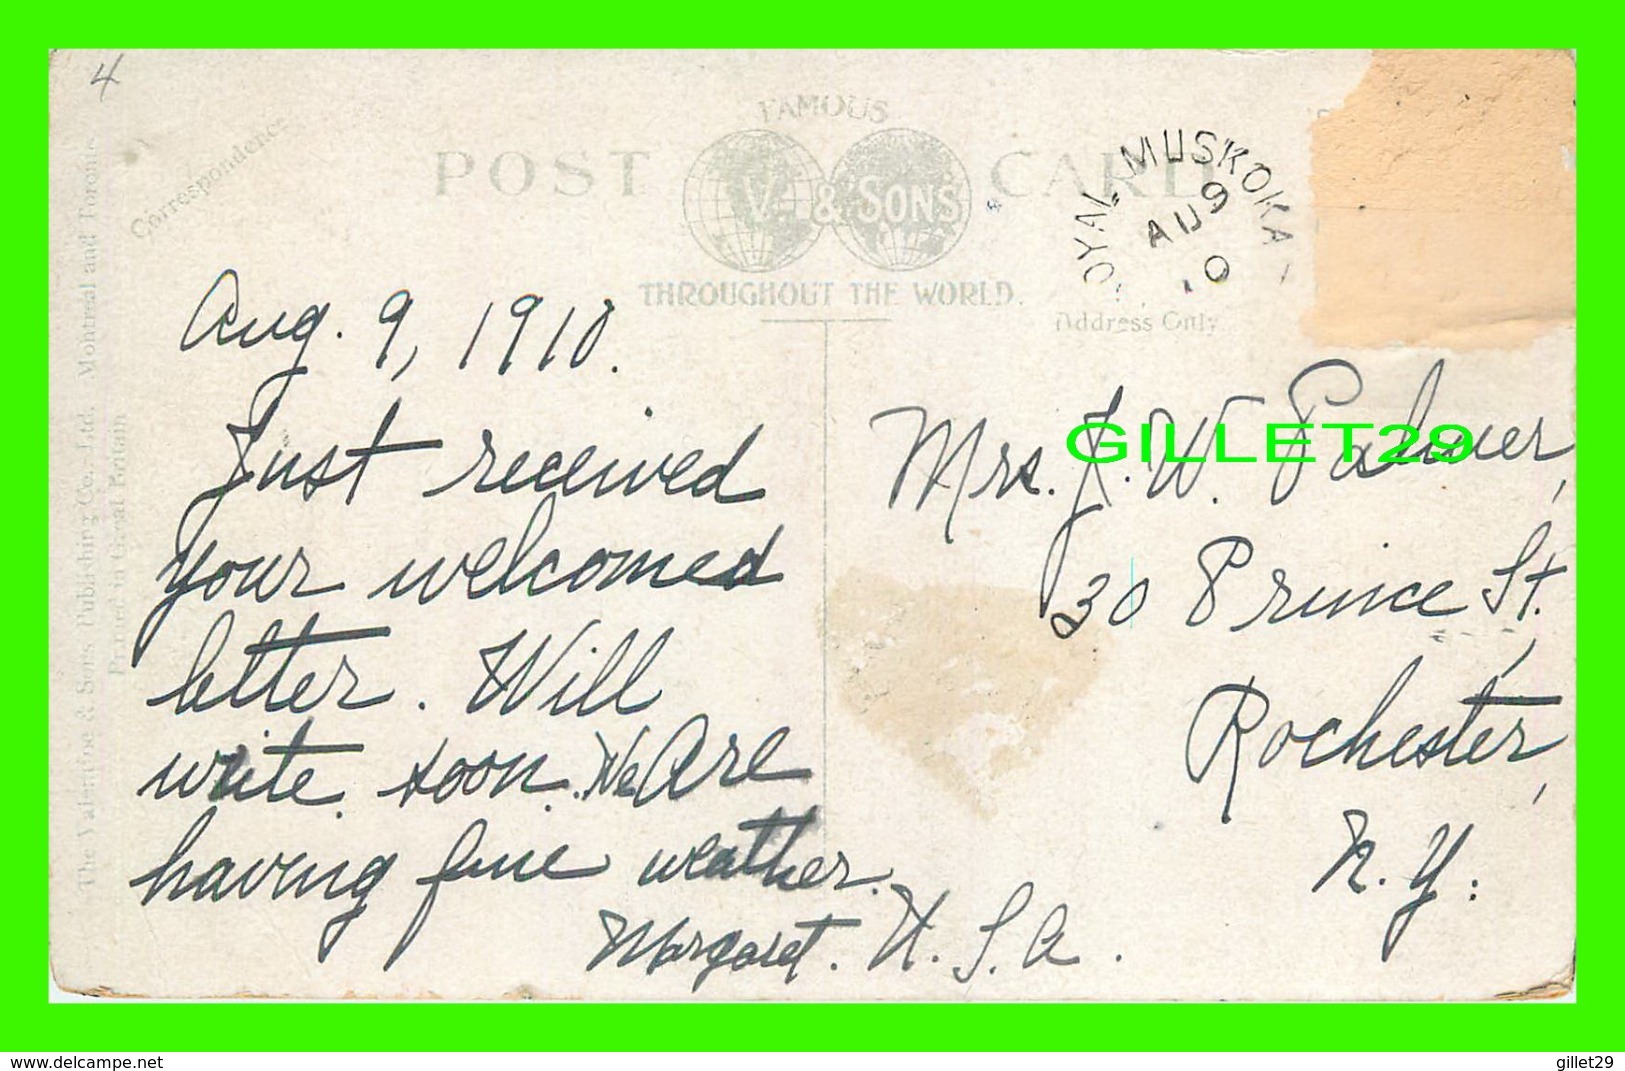 4
Correspondence
FAMOUS
POST CARD
V. & SONS
THROUGHOUT THE WORLD.
Address Only
OYAL MUSKOKA
AU 9
10
The Valentine & Sons Publishing Co., Ltd. Montreal and Toronto
Printed in Great Britain
Aug. 9, 1910.
Just received
your welcomed
letter. Will
write soon. We Are
having fine weather.
Margaret.
Mrs. J. W. Palmer,
30 Prince St.,
Rochester,
N. Y.
U. S. A.
GILLET29
www.delcampe.net
gillet29